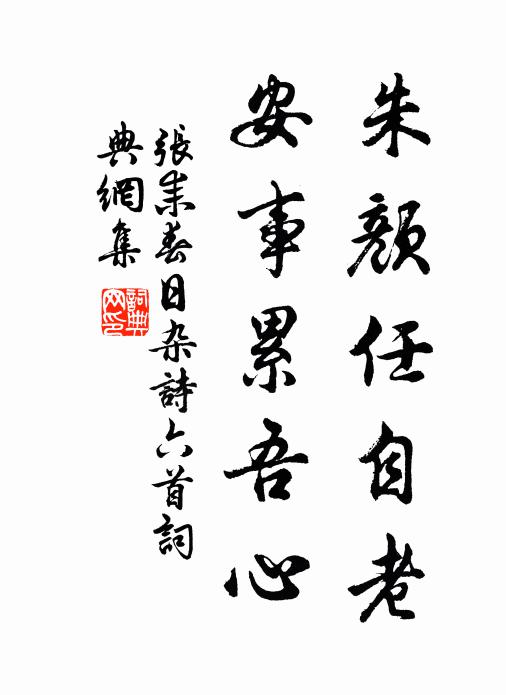 朱顏任自老
安事累吾心
張耒春日杂詩六首詞
典網集
詞典
网印